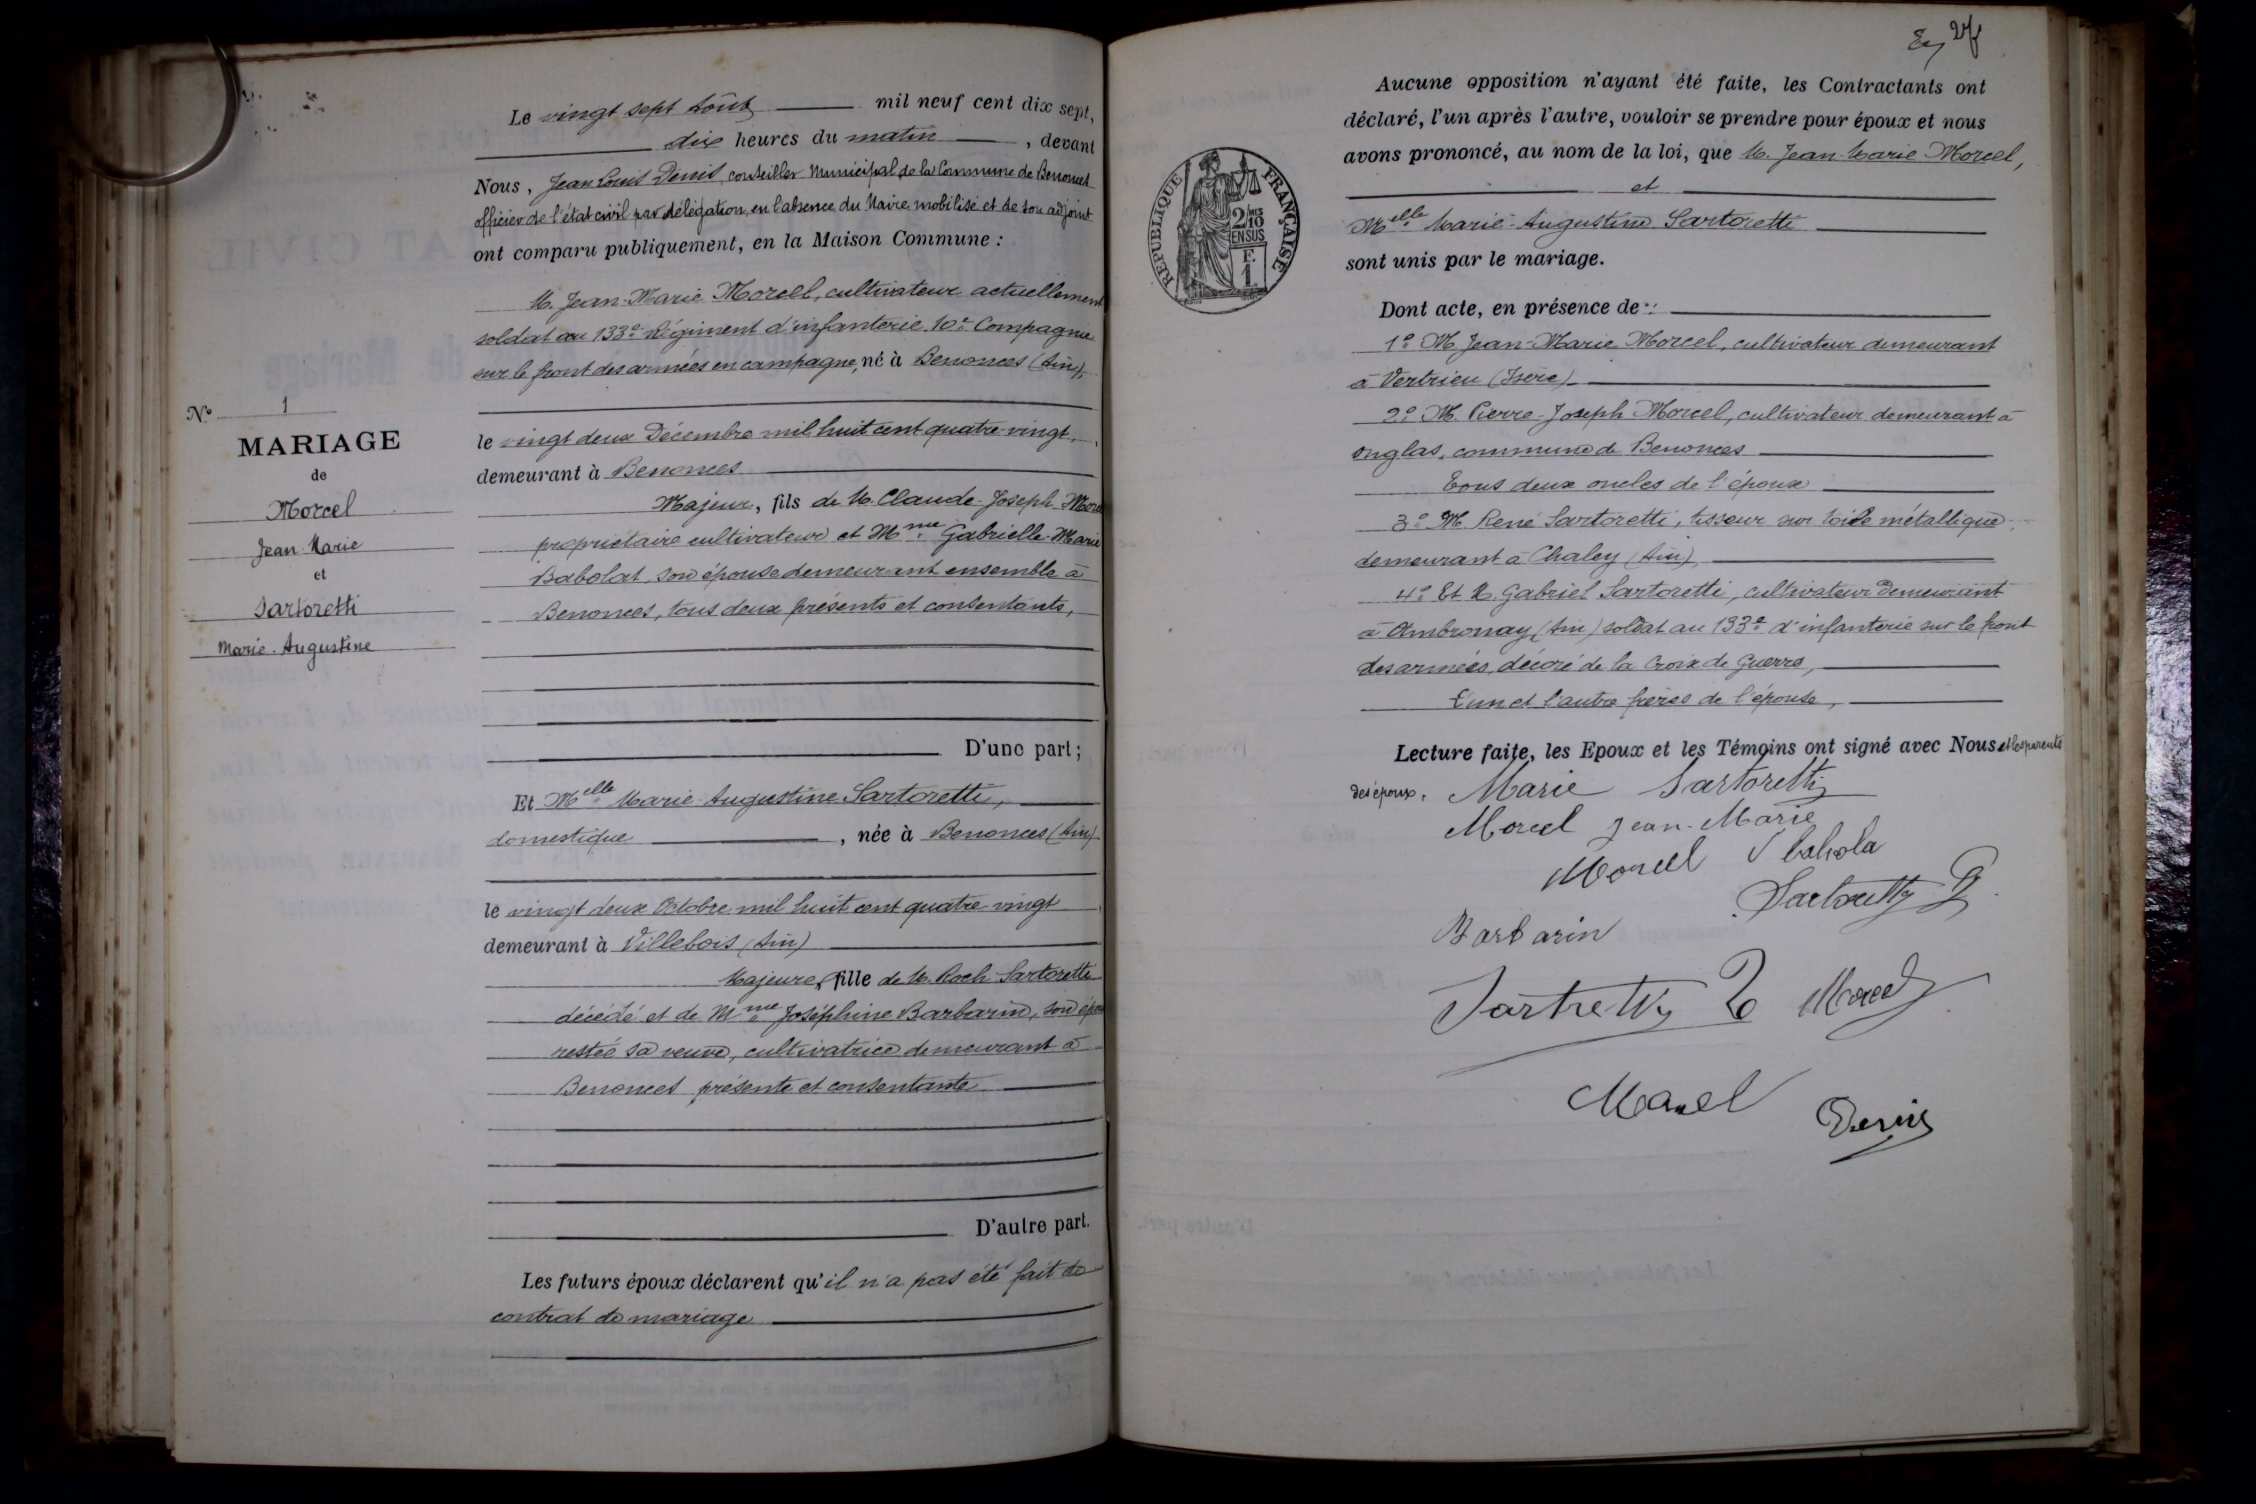 Le vingt sept Août mil neuf cent dix sept,
dix heures du matin, devant
Nous, Jean Louis Denis, conseiller Municipal de la Commune de Benonces
officier de l'état civil par délégation, en l'absence du Maire mobilisé et de son adjoint
ont comparu publiquement, en la Maison Commune :
M. Jean-Marie Morcel, cultivateur actuellement
soldat au 133e Régiment d'infanterie 10e Compagnie
sur le front des armées en campagne, né à Benonces (Ain),
le vingt deux Décembre mil huit cent quatre-vingt,
demeurant à Benonces
Majeur, fils de M. Claude-Joseph Morcel
propriétaire cultivateur et Mme Gabrielle-Marie
Babolat, son épouse demeurant ensemble à
Benonces, tous deux présents et consentants,
D'une part;
Et Melle Marie-Augustine Sartoretti,
domestique, née à Benonces (Ain)
le vingt deux Octobre mil huit cent quatre-vingt
demeurant à Villebois (Ain)
Majeure, fille de M. Roch Sartoretti
décédé et de Mme Joséphine Barbarin, son épouse
restée sa veuve, cultivatrice demeurant à
Benonces présente et consentante
D'autre part.
Les futurs époux déclarent qu'il n'a pas été fait de
contrat de mariage
No 1
MARIAGE
de
Morcel
Jean Marie
et
Sartoretti
Marie-Augustine
Aucune opposition n'ayant été faite, les Contractants ont
déclaré, l'un après l'autre, vouloir se prendre pour époux et nous
avons prononcé, au nom de la loi, que M. Jean-Marie Morcel,
et
Melle Marie-Augustine Sartoretti
sont unis par le mariage.
RÉPUBLIQUE FRANÇAISE
2/10 EN SUS
F. 1
Dont acte, en présence de :
1° M. Jean-Marie Morcel, cultivateur demeurant
à Vertrieu (Isère)
2° M. Pierre-Joseph Morcel, cultivateur demeurant à
Onglas, commune de Benonces
Tous deux oncles de l'époux
3° M. René Sartoretti, tisseur sur toile métallique
demeurant à Chaley (Ain)
4° Et M. Gabriel Sartoretti, cultivateur demeurant
à Ambronay (Ain) soldat au 133e d'infanterie sur le front
des armées, décoré de la Croix de Guerre,
L'un et l'autre frères de l'épouse,
Lecture faite, les Epoux et les Témoins ont signé avec Nous et les parents
des époux.
Marie Sartoretti
Morcel Jean-Marie
Morcel
Sartoretty G
Barbarin
Sartretty R Morcel
Morel
Denis